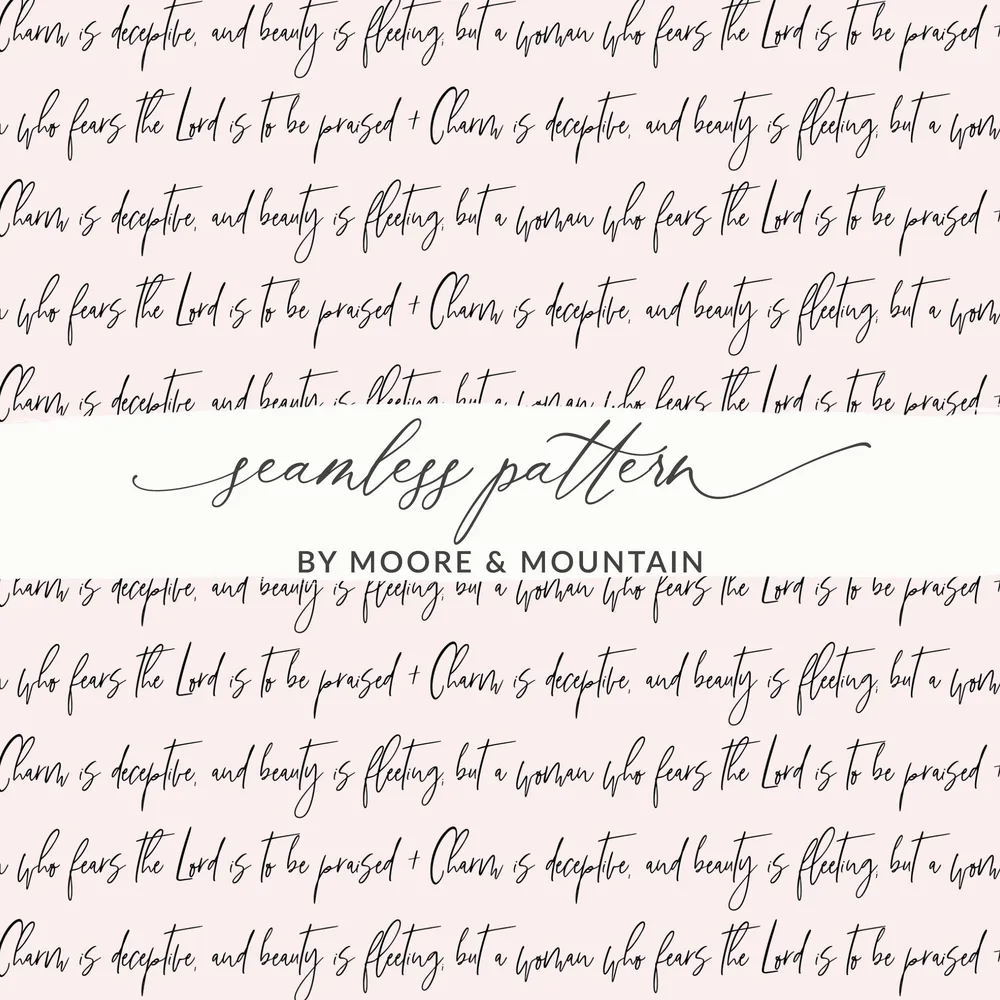 Charm is deceptive, and beauty is fleeting, but a woman who fears the Lord is to be praised +
who fears the Lord is to be praised + Charm is deceptive, and beauty is fleeting, but a wom
Charm is deceptive, and beauty is fleeting, but a woman who fears the Lord is to be praised +
who fears the Lord is to be praised + Charm is deceptive, and beauty is fleeting, but a wom
Charm is deceptive and beauty is fleeting but a woman who fears the Lord is to be praised +
seamless pattern
BY MOORE & MOUNTAIN
Charm is deceptive, and beauty is fleeting, but a woman who fears the Lord is to be praised +
who fears the Lord is to be praised + Charm is deceptive, and beauty is fleeting, but a wom
Charm is deceptive, and beauty is fleeting, but a woman who fears the Lord is to be praised +
who fears the Lord is to be praised + Charm is deceptive, and beauty is fleeting, but a wom
Charm is deceptive, and beauty is fleeting, but a woman who fears the Lord is to be praised +